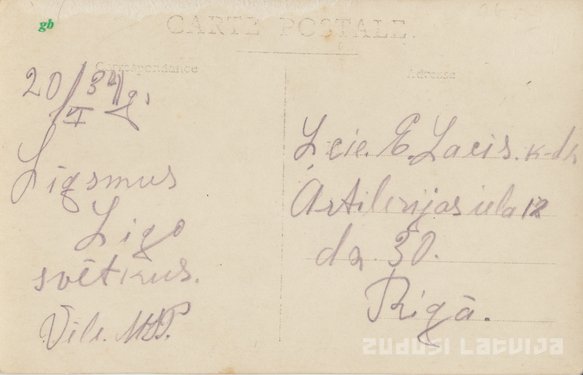 gb
CARTE POSTALE.
Correspondance
Adresse
20/I 34 g.
Ligsmus
Ligo
svētkus.
Vil.
L. cie. E. Lacis. k-dz
Artilerijas iela 12
dz. 30.
Rīgā.
ZUDUSI LATVIJA